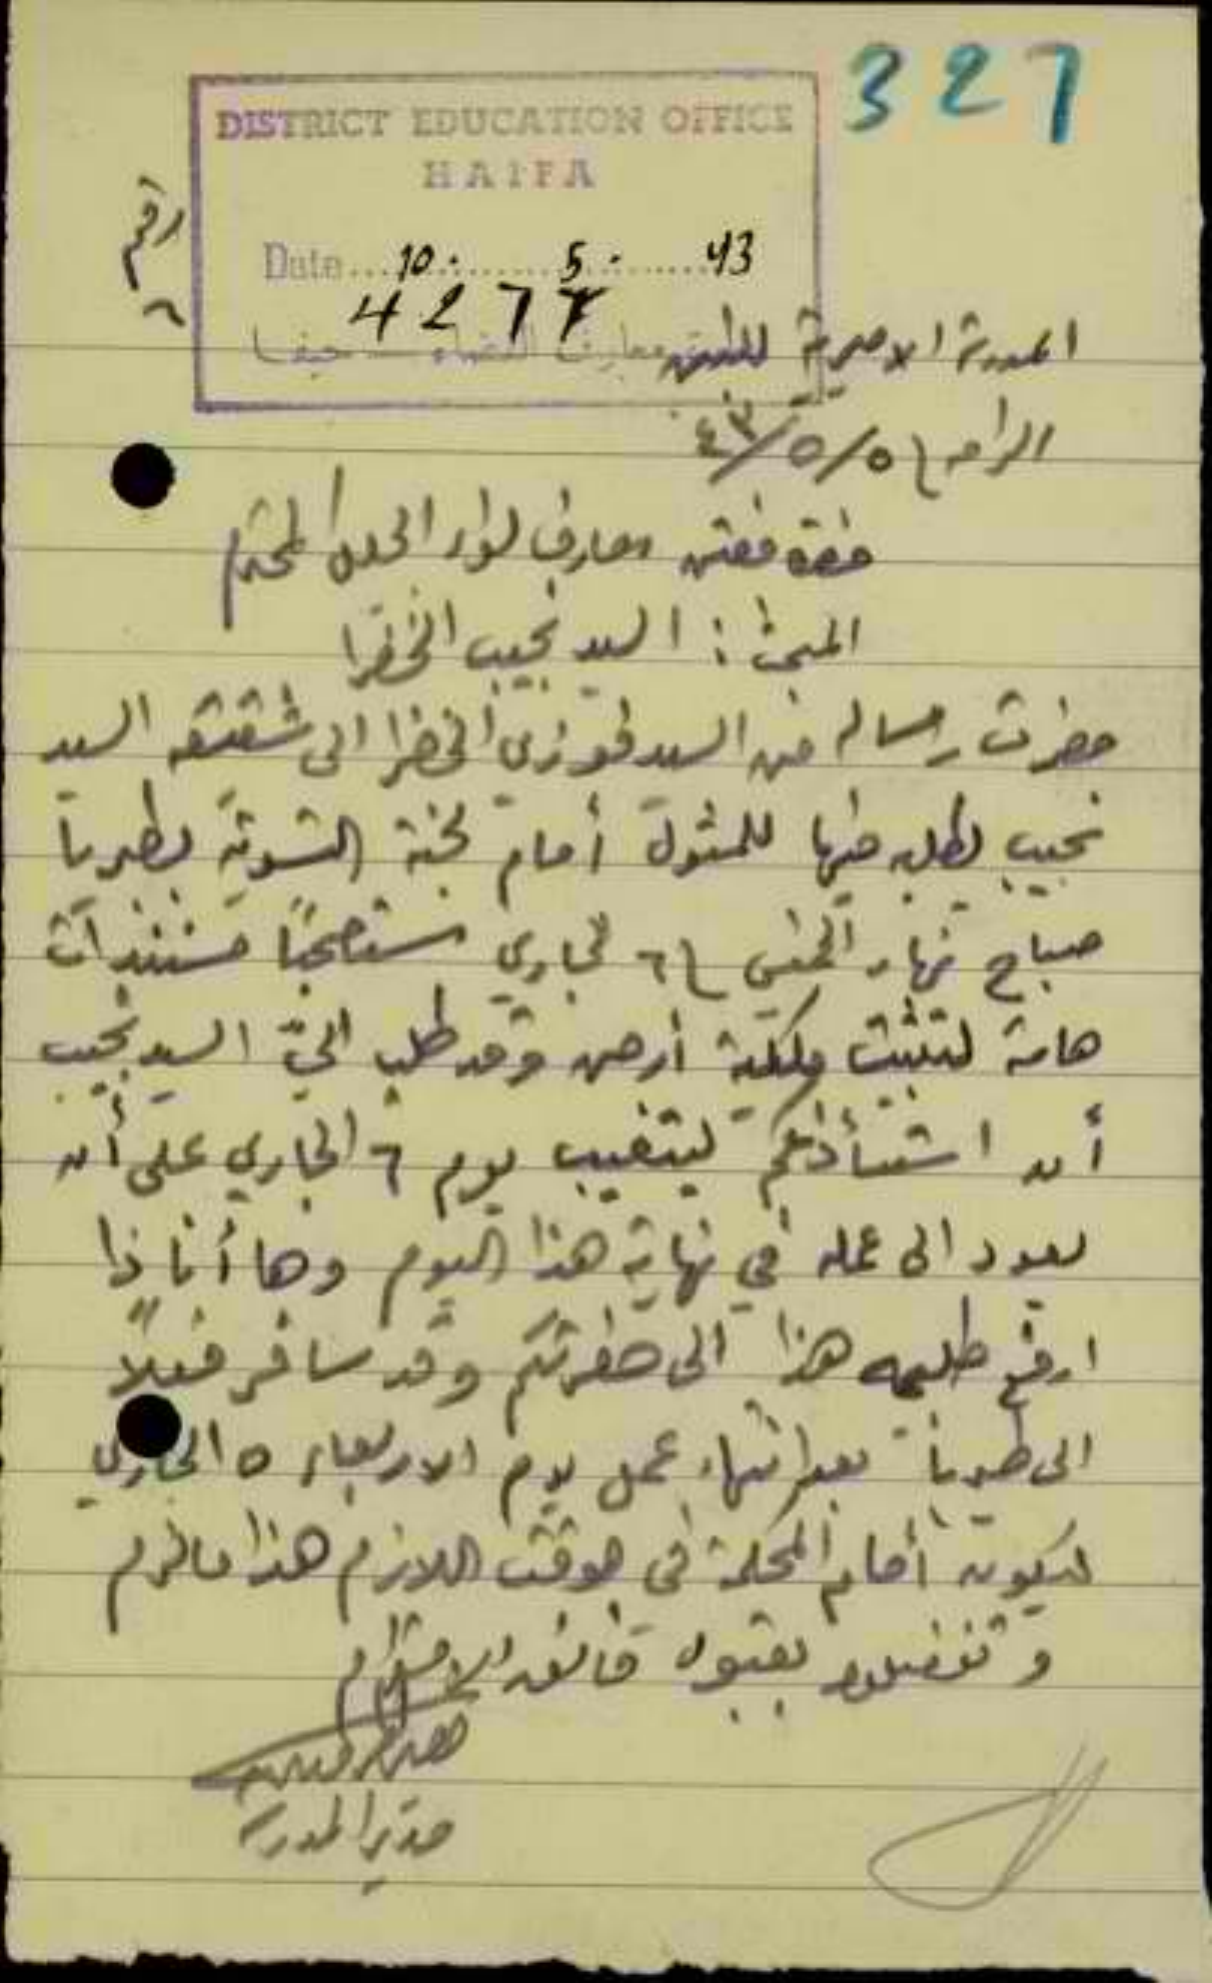 327
DISTRICT EDUCATION OFFICE
HAIFA
Date...10.......5.......43
4277
حيفا
رقم
المدرسة الاميرية للبنين
الرامه ٥/٥/٤٣
مفتش معارف لواء الجليل المحترم
المبحث: السيد نجيب الخضرا
حضرت رسالة من السيد فوزي الخضرا الى شقيقه السيد
نجيب يطلبه فيها للمثول أمام لجنة التسوية بطبريا
صباح نهار الخميس ٦ الجاري مستصحبًا مستندات
هامة لتثبيت ملكية أرض وقد طلب اليّ السيد نجيب
أن استأذنكم ليتغيب يوم ٦ الجاري على أن
يعود الى عمله في نهاية هذا اليوم وها أنا ذا
ارفع طلبه هذا الى حضرتكم وقد سافر فعلاً
الى طبريا بعد انتهاء عمل يوم الاربعاء ٥ الجاري
ليكون أمام المحكمة في الوقت اللازم هذا ما لزم
وتفضلوا بقبول فائق الاحترام
مدير المدرسة